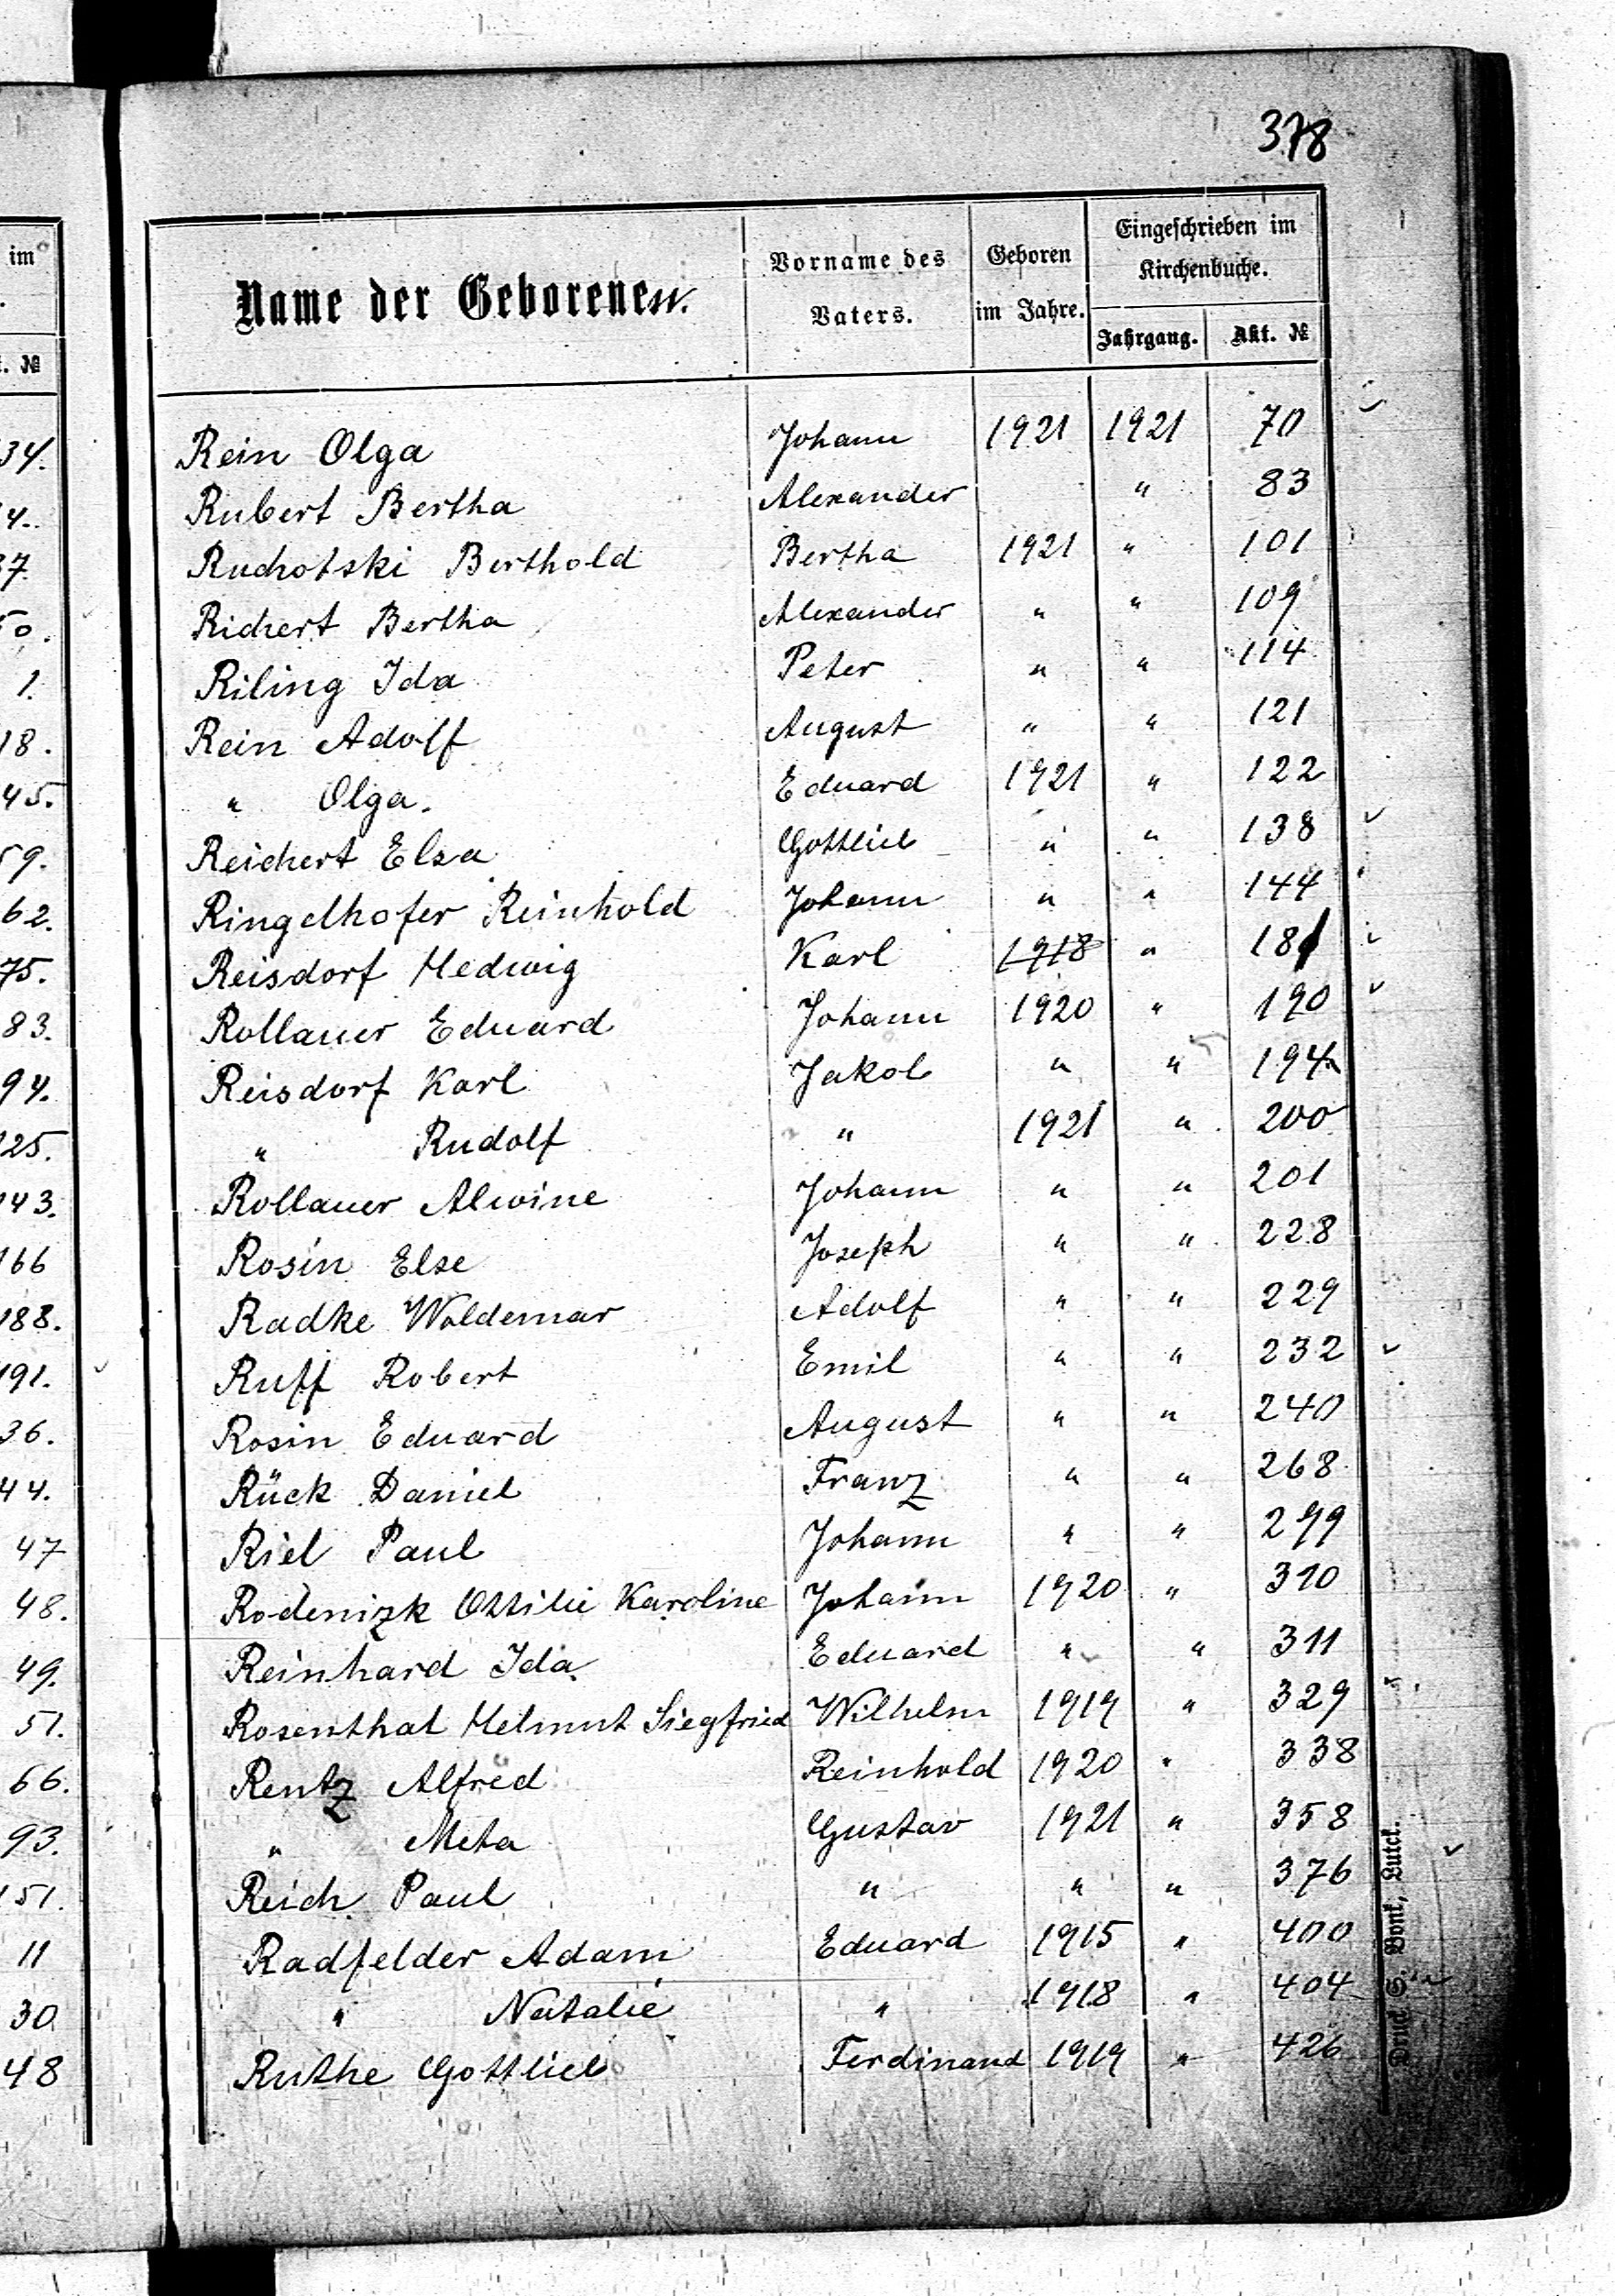 378
Name der Geborenen.
Vorname des Vaters.
Geboren im Jahre.
Eingeschrieben im Kirchenbuche.
Jahrgang. Akt. №
Rein Olga Johann 1921 1921 70
Rubert Bertha Alexander " 83
Ruchotski Berthold Bertha 1921 " 101
Richert Bertha Alexander " " 109
Riling Ida Peter " " 114
Rein Adolf August " " 121
" Olga. Eduard 1921 " 122
Reichert Elsa Gottlieb " " 138
Ringelhofer Reinhold Johann " " 144
Reisdorf Hedwig Karl 1918 " 181
Rollauer Eduard Johann 1920 " 190
Reisdorf Karl Jakob " " 194
" Rudolf " 1921 " 200
Rollauer Alwine Johann " " 201
Rosin Else Joseph " " 228
Radke Woldemar Adolf " " 229
Ruff Robert Emil " " 232
Rosin Eduard August " " 240
Rück Daniel Franz " " 268
Riel Paul Johann " " 299
Rodenizk Ottilie Karoline Johann 1920 " 310
Reinhard Ida Eduard " " 311
Rosenthal Helmut Siegfried Wilhelm 1919 " 329
Rentz Alfred Reinhold 1920 " 338
" Meta Gustav 1921 " 358
Reich Paul " " " 376
Radfelder Adam Eduard 1915 " 400
" Natalie " 1918 " 404
Ruthe Gottlieb Ferdinand 1919 " 426
im
. №
34.
4.
37.
50.
1.
18.
45.
59.
62.
75.
83.
94.
125.
143.
166
188.
191.
36.
44.
47
48.
49.
51.
66.
93.
151.
11
30
48
Druck S. Bonk, Lutck.